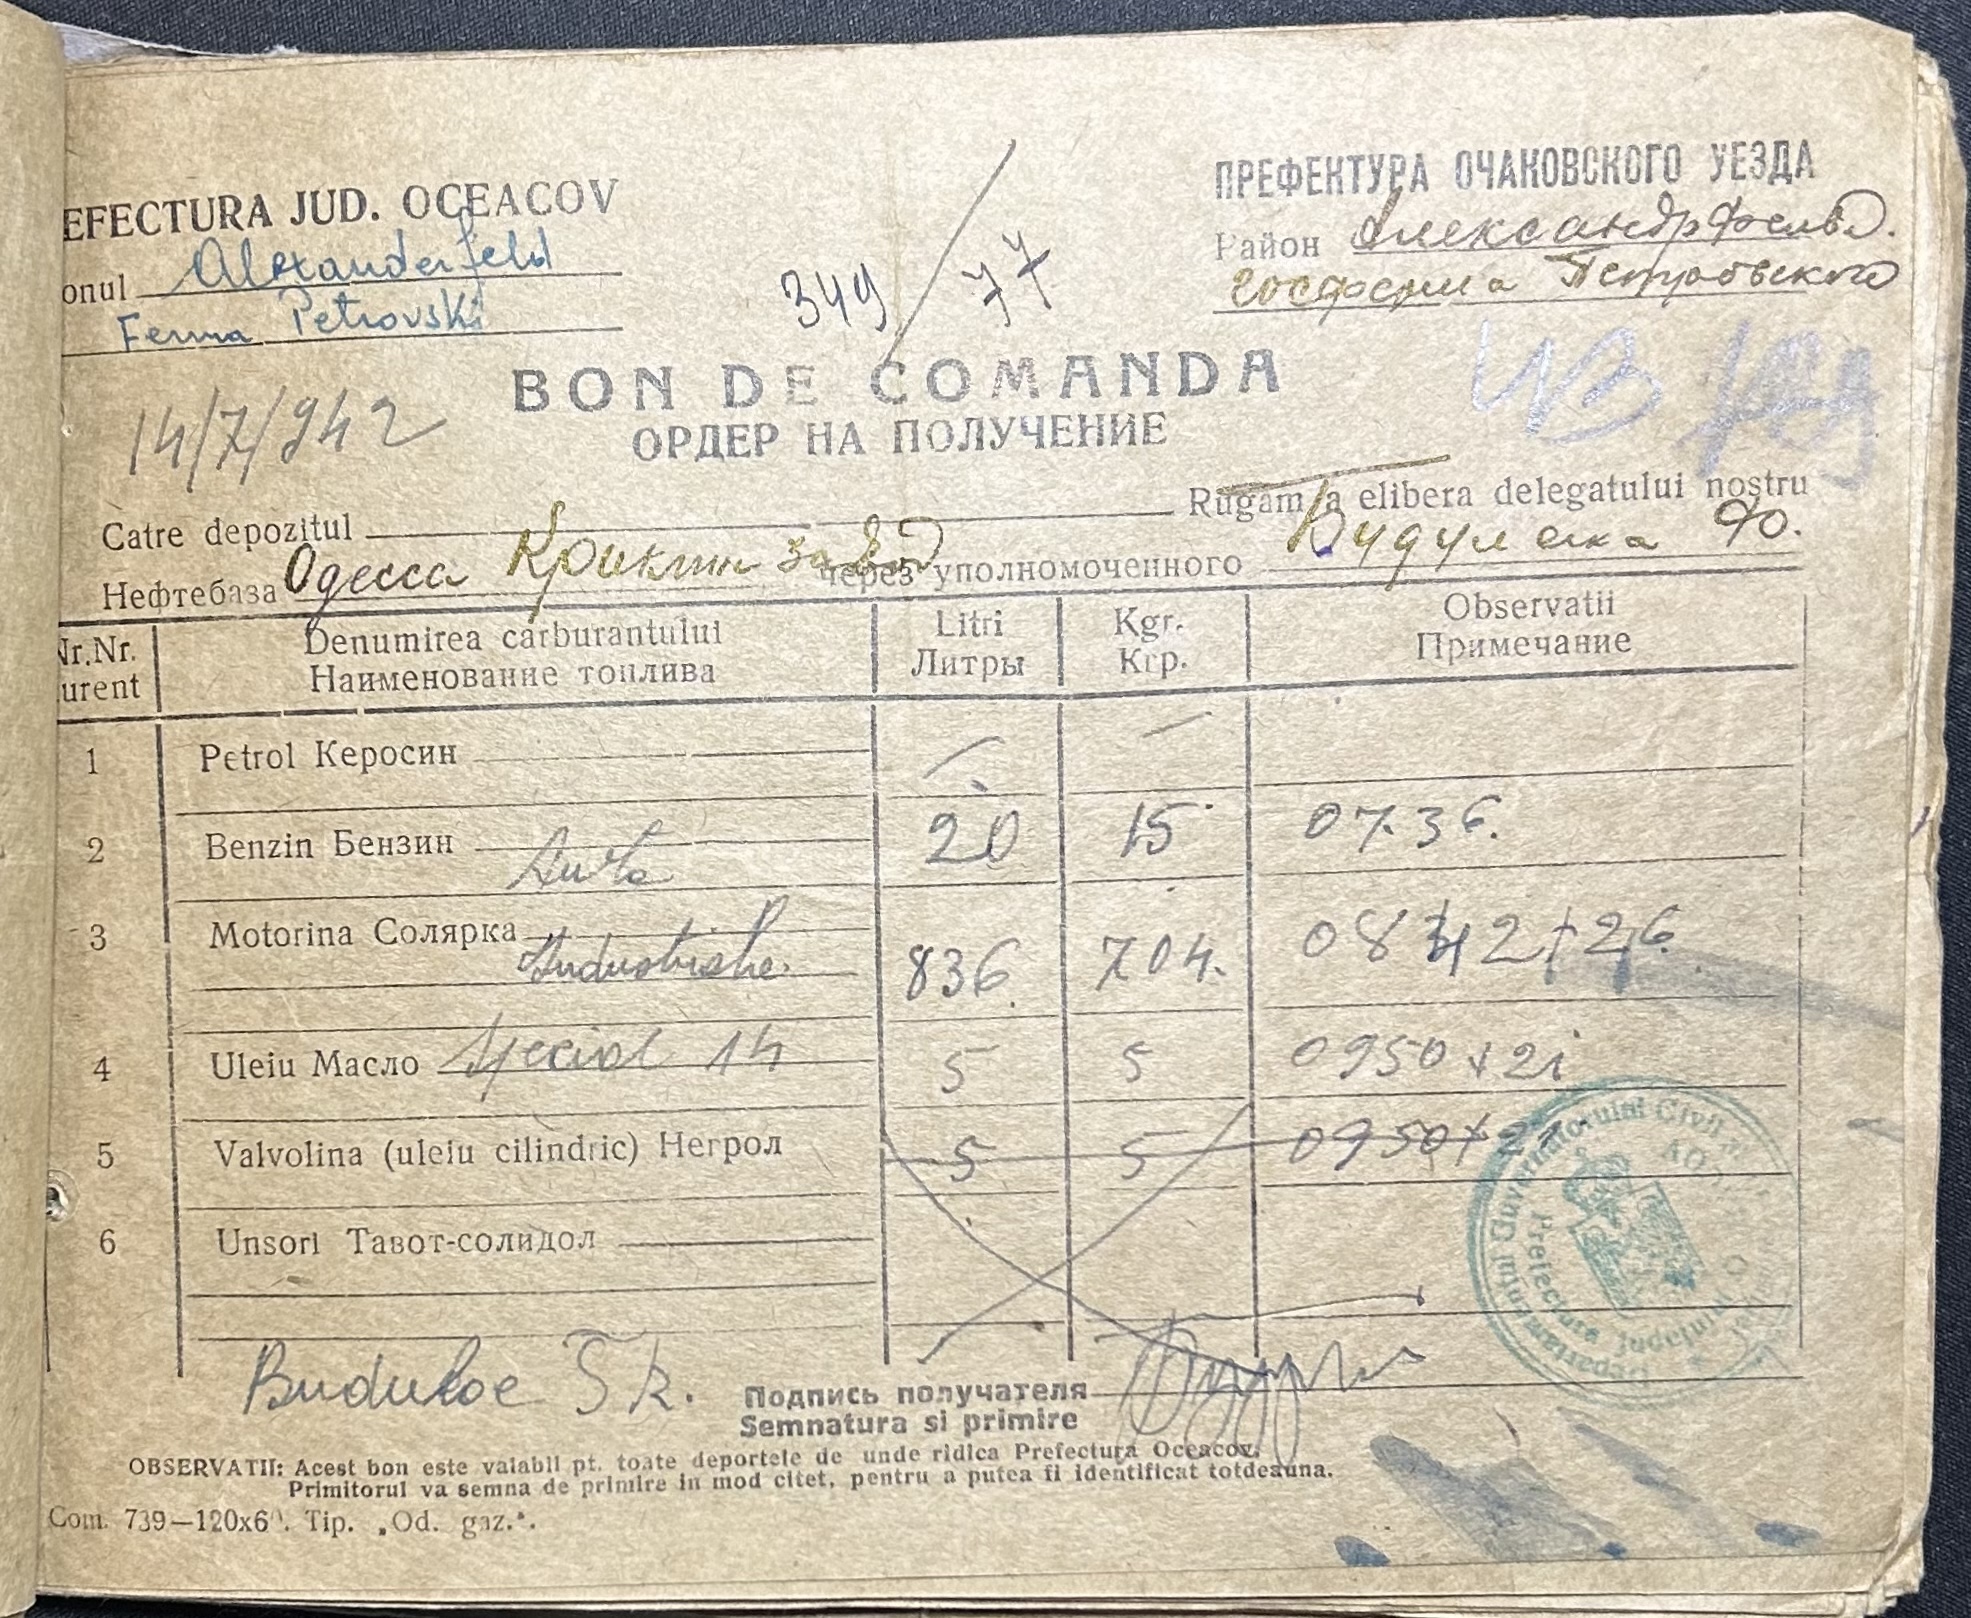 EFECTURA JUD. OCEACOV
onul Alexanderfeld
Ferma Petrovski
349/77
ПРЕФЕКТУРА ОЧАКОВСКОГО УЕЗДА
Район Александрфельд.
госферма Петровского
14/7/942
BON DE COMANDA
ОРДЕР НА ПОЛУЧЕНИЕ
Catre depozitul Rugam a elibera delegatului nostru
Нефтебаза Одесса завод через уполномоченного
Nr.Nr. Denumirea carburantului Litri Kgr. Observatii
urent Наименование топлива Литры Кгр. Примечание
1 Petrol Керосин — —
2 Benzin Бензин Auto 20 15 0736.
3 Motorina Солярка 836 704. 0842+26
4 Uleiu Масло Special 14 5 5 0950+21
5 Valvolina (uleiu cilindric) Негрол 5 5 0950+21
6 Unsori Тавот-солидол
Подпись получателя
Semnatura si primire
OBSERVATII: Acest bon este valabil pt. toate deportele de unde ridica Prefectura Oceacov.
Primitorul va semna de primire in mod citet, pentru a putea fi identificat totdeauna.
Com. 739—120x60. Tip. „Od. gaz.".
Guvernatorului Civil
Prefectura Judeţului